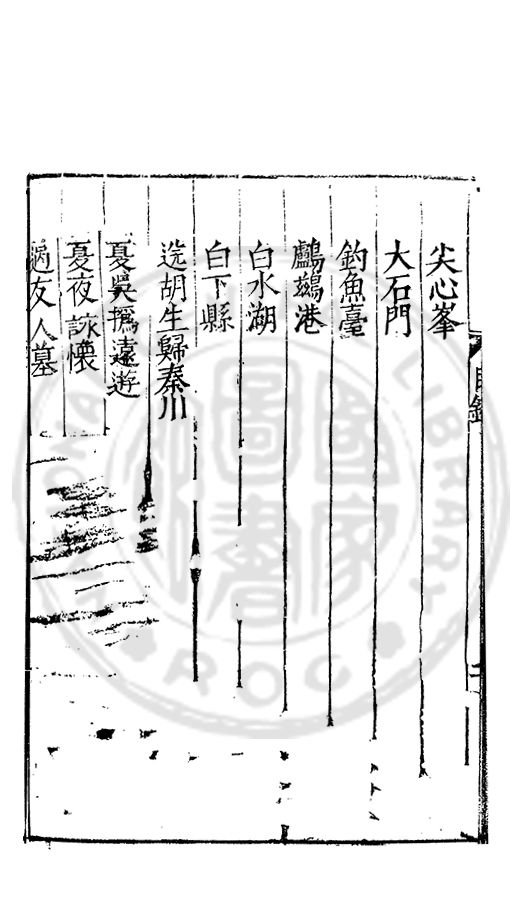 目錄
尖心峯
大石門
釣魚臺
鸕鷀港
白水湖
白下縣
送胡生歸秦川
夏吳遠遊
夏夜詠懷
過友人墓
國家
圖書
LIBRARY
ROC